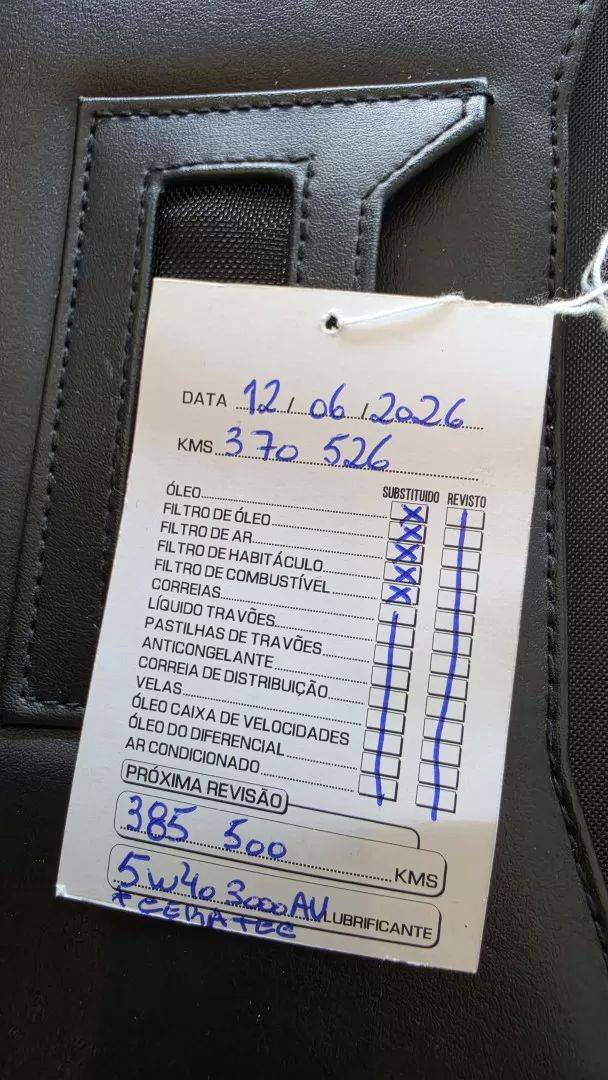 DATA 12 / 06 / 2026
KMS 370 526
SUBSTITUIDO REVISTO
ÓLEO
FILTRO DE ÓLEO
FILTRO DE AR
FILTRO DE HABITÁCULO
FILTRO DE COMBUSTÍVEL
CORREIAS
LÍQUIDO TRAVÕES
PASTILHAS DE TRAVÕES
ANTICONGELANTE
CORREIA DE DISTRIBUIÇÃO
VELAS
ÓLEO CAIXA DE VELOCIDADES
ÓLEO DO DIFERENCIAL
AR CONDICIONADO
PRÓXIMA REVISÃO
385 500 KMS
5W40 3000AV LUBRIFICANTE
+ CERATEC